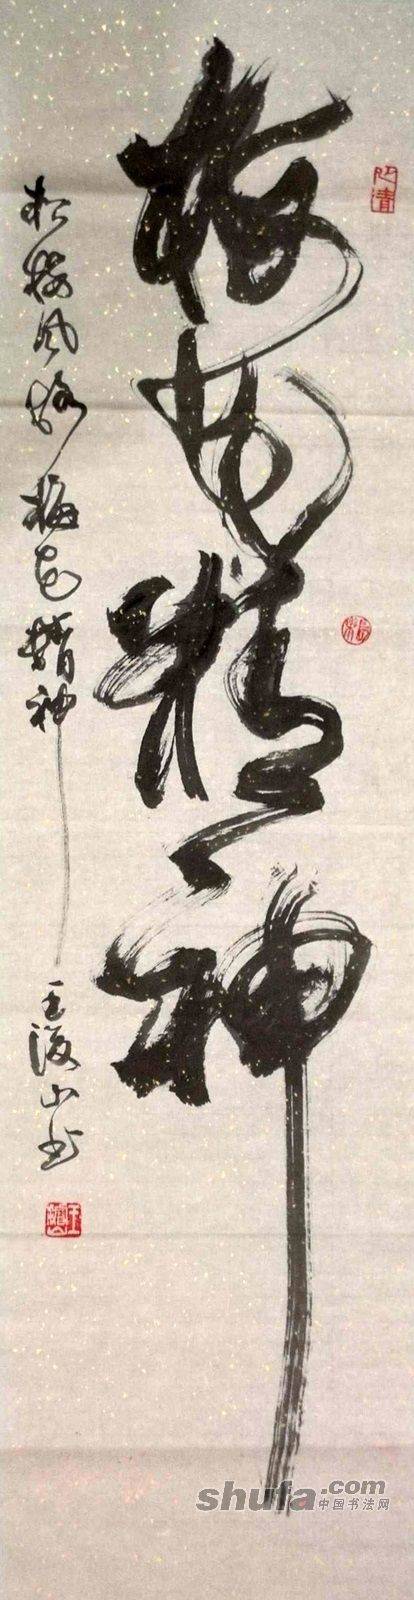 梅花精神
松梅风格梅花精神
王海山书
shufa.com
中国书法网